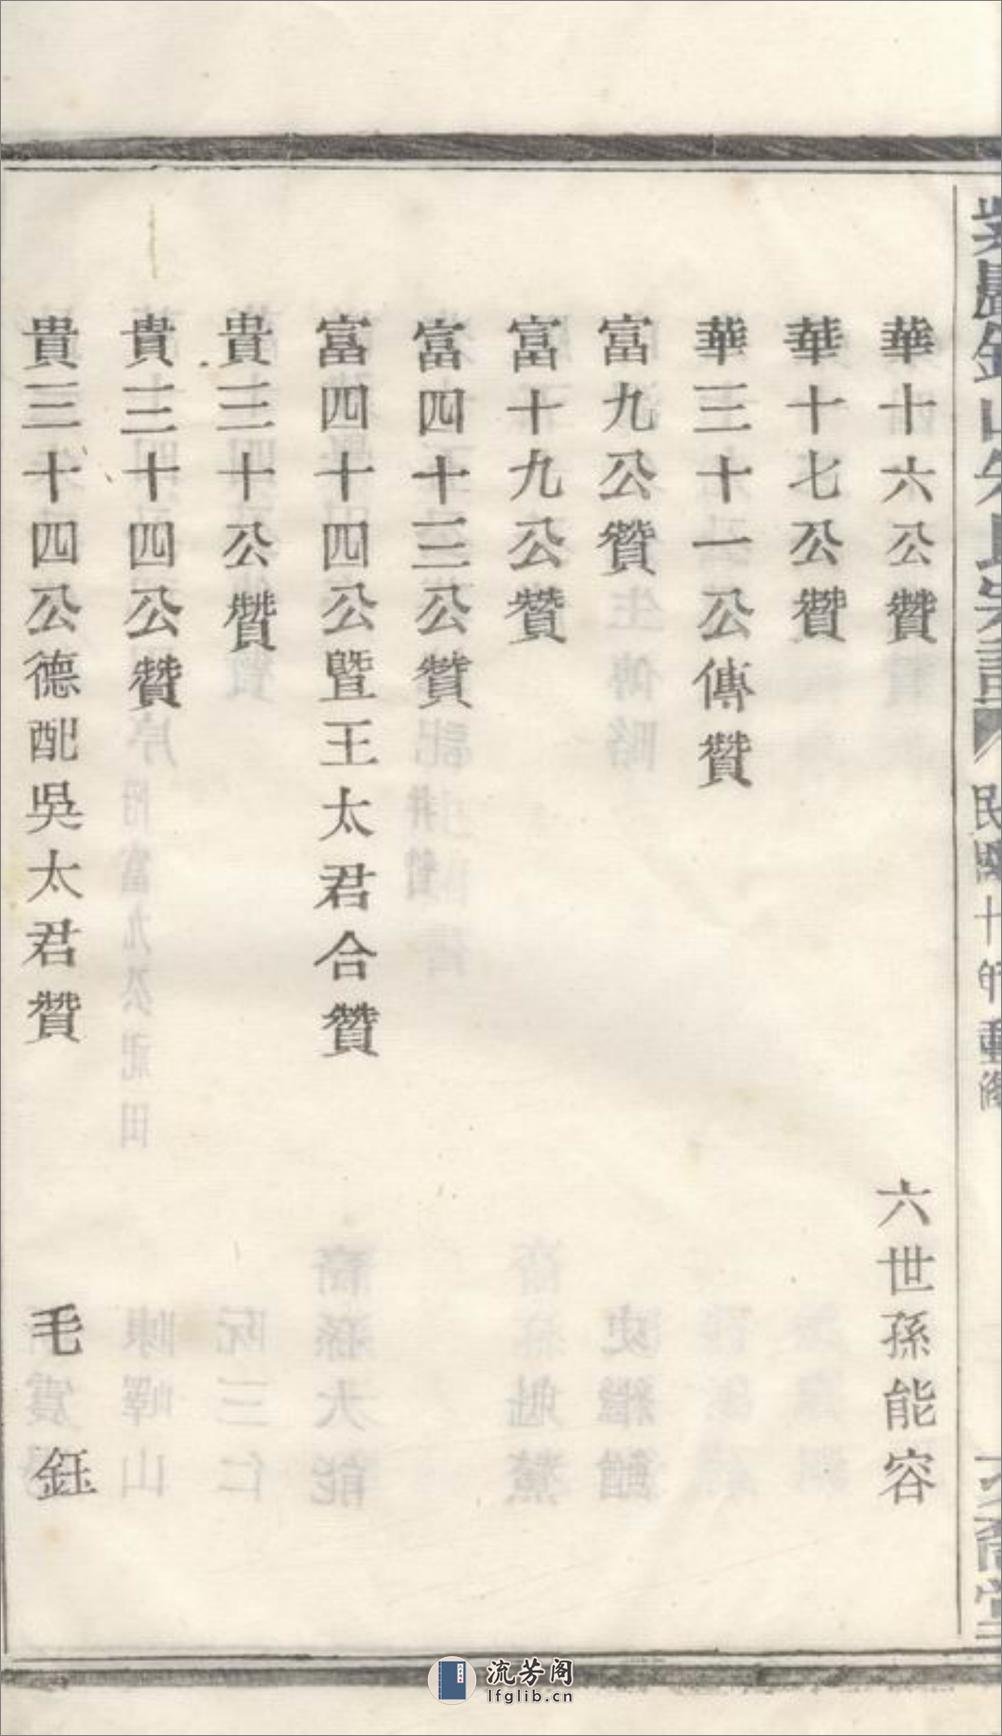 華十六公贊 六世孫能容
華十七公贊
華三十一公傳贊
富九公贊
富十九公贊
富四十三公贊
富四十四公暨王太君合贊
貴三十公贊
貴三十四公贊
貴三十四公德配吳太君贊 毛鈺
流芳阁
lfglib.cn